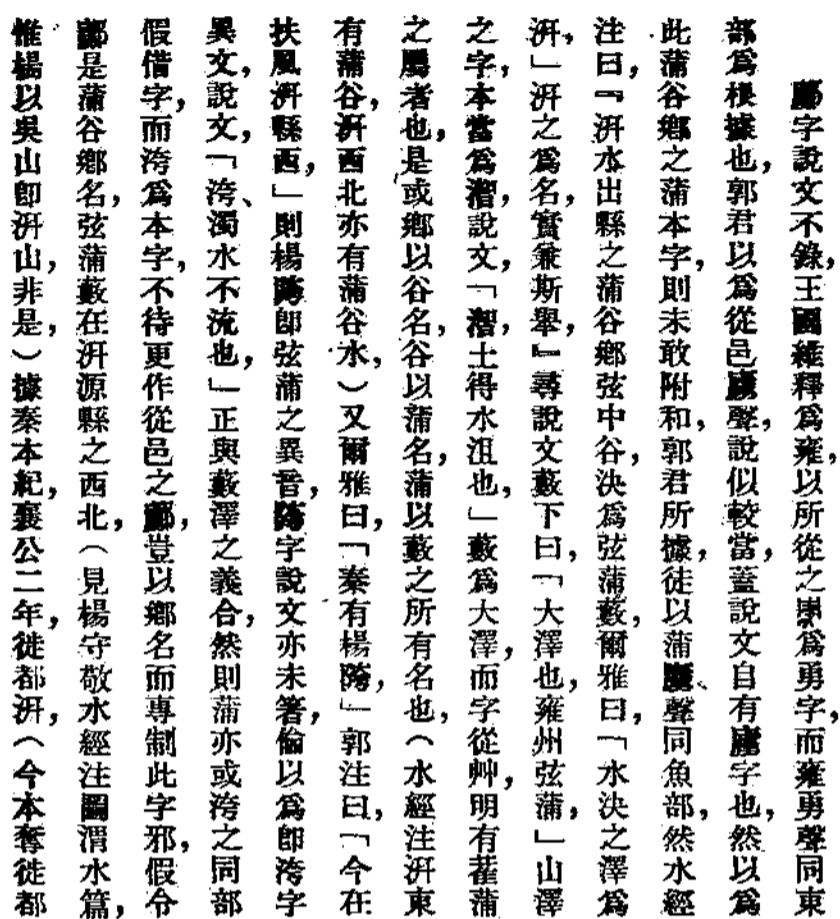 字說文不錄，王國維釋爲雍，以所從之爲勇字，而雍勇聲同東
部爲根據也，郭君以爲從邑聲，說似較當，蓋說文自有字也，然以爲
此蒲谷鄉之蒲本字，則未敢附和，郭君所據，徒以蒲聲同魚部，然水經
注曰，『汧水出縣之蒲谷鄉弦中谷，決爲弦蒲藪，爾雅曰，「水決之澤爲
汧，」汧之爲名，實兼斯舉，』尋說文藪下曰，「大澤也，雍州弦蒲，」山澤
之字，本當爲，說文，「，土得水沮也，」藪爲大澤，而字從艸，明有萑蒲
之屬者也，是或鄉以谷名，谷以蒲名，蒲以藪之所有名也，（水經注汧東
有蒲谷，汧西北亦有蒲谷水，）又爾雅曰，「秦有楊陓，」郭注曰，「今在
扶風汧縣西，」則楊陓卽弦蒲之異音，陓字說文亦未箸，倫以爲卽洿字
異文，說文，「洿、濁水不流也，」正與藪澤之義合，然則蒲亦或洿之同部
假借字，而洿爲本字，不待更作從邑之，豈以鄉名而專制此字邪，假令
是蒲谷鄉名，弦蒲藪在汧源縣之西北，（見楊守敬水經注圖渭水篇，
惟楊以吳山卽汧山，非是，）據秦本紀，襄公二年，徙都汧，（今本奪徙都